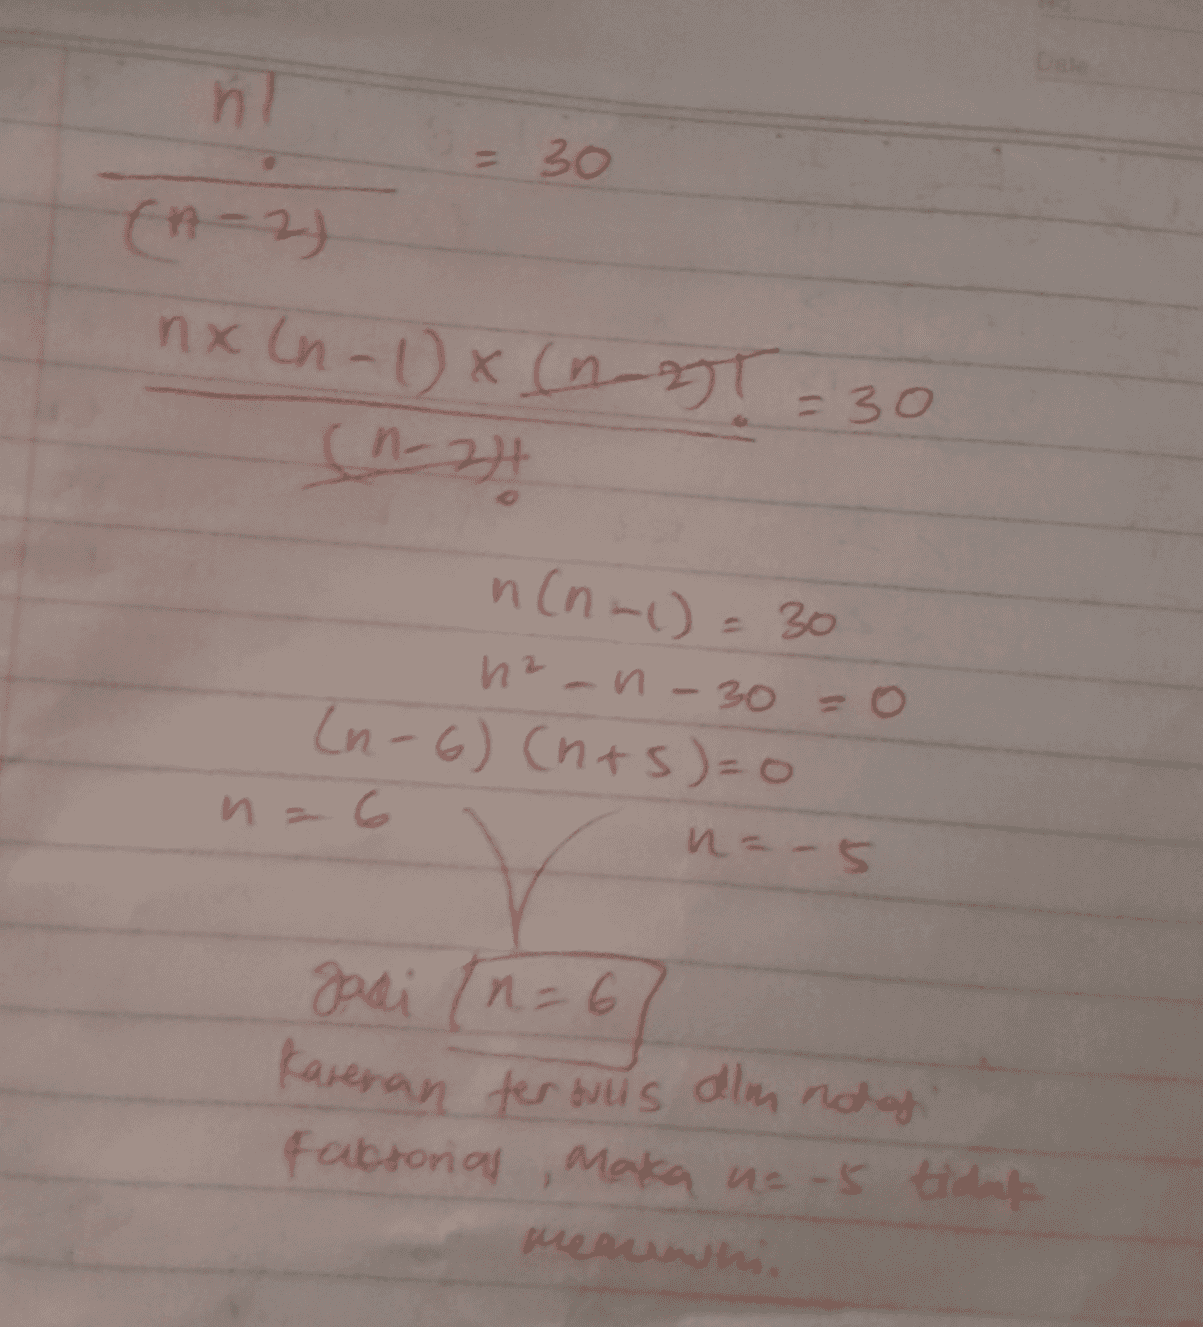 Date
n!
= 30
(n-2)
n x (n-1) x (n-2)! = 30
(n-2)!
n(n-1) = 30
n² - n - 30 = 0
(n-6) (n+5) = 0
n = 6
n = -5
Jadi n = 6
karenan tertulis dlm notasi
faktorial, maka n = -5 tidak
memenuhi.